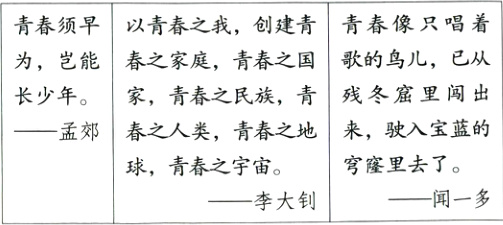 青春须早
为，岂能
长少年。
——孟郊
以青春之我，创建青
春之家庭，青春之国
家，青春之民族，青
春之人类，青春之地
球，青春之宇宙。
——李大钊
青春像只唱着
歌的鸟儿，已从
残冬窟里闯出
来，驶入宝蓝的
穹窿里去了。
——闻一多